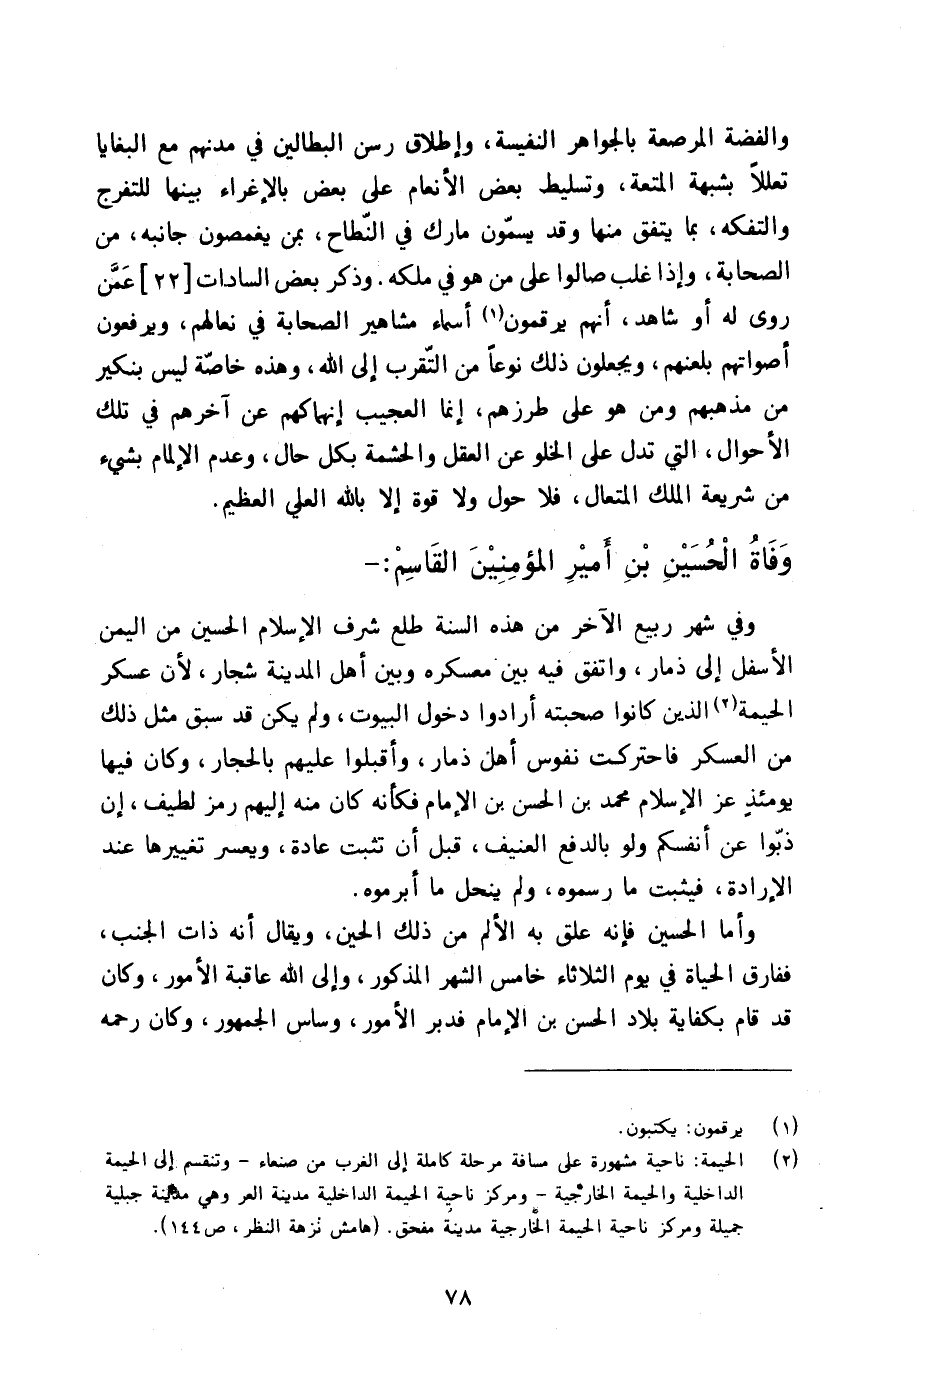 والفضة المرصعة بالجواهر النفيسة، وإطلاق رسن البطالين في مدنهم مع البغايا
تعللاً بشبهة المتعة، وتسليط بعض الأنعام على بعض بالإغراء بينها للتفرج
والتفكه، بما يتفق منها وقد يسمّون مارك في النّطاح، بمن يغمصون جانبه، من
الصحابة، وإذا غلب صالوا على من هو في ملكه. وذكر بعض السادات [٢٢] عَمَّن
روى له أو شاهد، أنهم يرقمون(١) أسماء مشاهير الصحابة في نعالهم، ويرفعون
أصواتهم بلعنهم، ويجعلون ذلك نوعاً من التّقرب إلى الله، وهذه خاصّة ليس بنكير
من مذهبهم ومن هو على طرزهم، إنما العجيب إنهاكهم عن آخرهم في تلك
الأحوال، التي تدل على الخلو عن العقل والحشمة بكل حال، وعدم الإلمام بشيء
من شريعة الملك المتعال، فلا حول ولا قوة إلا بالله العلي العظيم.
وَفَاةُ الْحُسَيْنِ بْنِ أَميْرِ المؤمِنِيْنَ القَاسِمْ:-
وفي شهر ربيع الآخر من هذه السنة طلع شرف الإسلام الحسين من اليمن
الأسفل إلى ذمار، واتفق فيه بين معسكره وبين أهل المدينة شجار، لأن عسكر
الحيمة(٢) الذين كانوا صحبته أرادوا دخول البيوت، ولم يكن قد سبق مثل ذلك
من العسكر فاحتركت نفوس أهل ذمار، وأقبلوا عليهم بالحجار، وكان فيها
يومئذٍ عز الإسلام محمد بن الحسن بن الإمام فكأنه كان منه إليهم رمز لطيف، إن
ذبّوا عن أنفسكم ولو بالدفع العنيف، قبل أن تثبت عادة، ويعسر تغييرها عند
الإرادة، فيثبت ما رسموه، ولم ينحل ما أبرموه.
وأما الحسين فإنه علق به الألم من ذلك الحين، ويقال أنه ذات الجنب،
ففارق الحياة في يوم الثلاثاء خامس الشهر المذكور، وإلى الله عاقبة الأمور، وكان
قد قام بكفاية بلاد الحسن بن الإمام فدبر الأمور، وساس الجمهور، وكان رحمه
(١) يرقمون: يكتبون.
(٢) الحيمة: ناحية مشهورة على مسافة مرحلة كاملة إلى الغرب من صنعاء - وتنقسم إلى الحيمة
الداخلية والحيمة الخارجية - ومركز ناحية الحيمة الداخلية مدينة العر وهي مدينة جبلية
جميلة ومركز ناحية الحيمة الخارجية مدينة مفحق. (هامش نزهة النظر، ص١٤٤).
٧٨